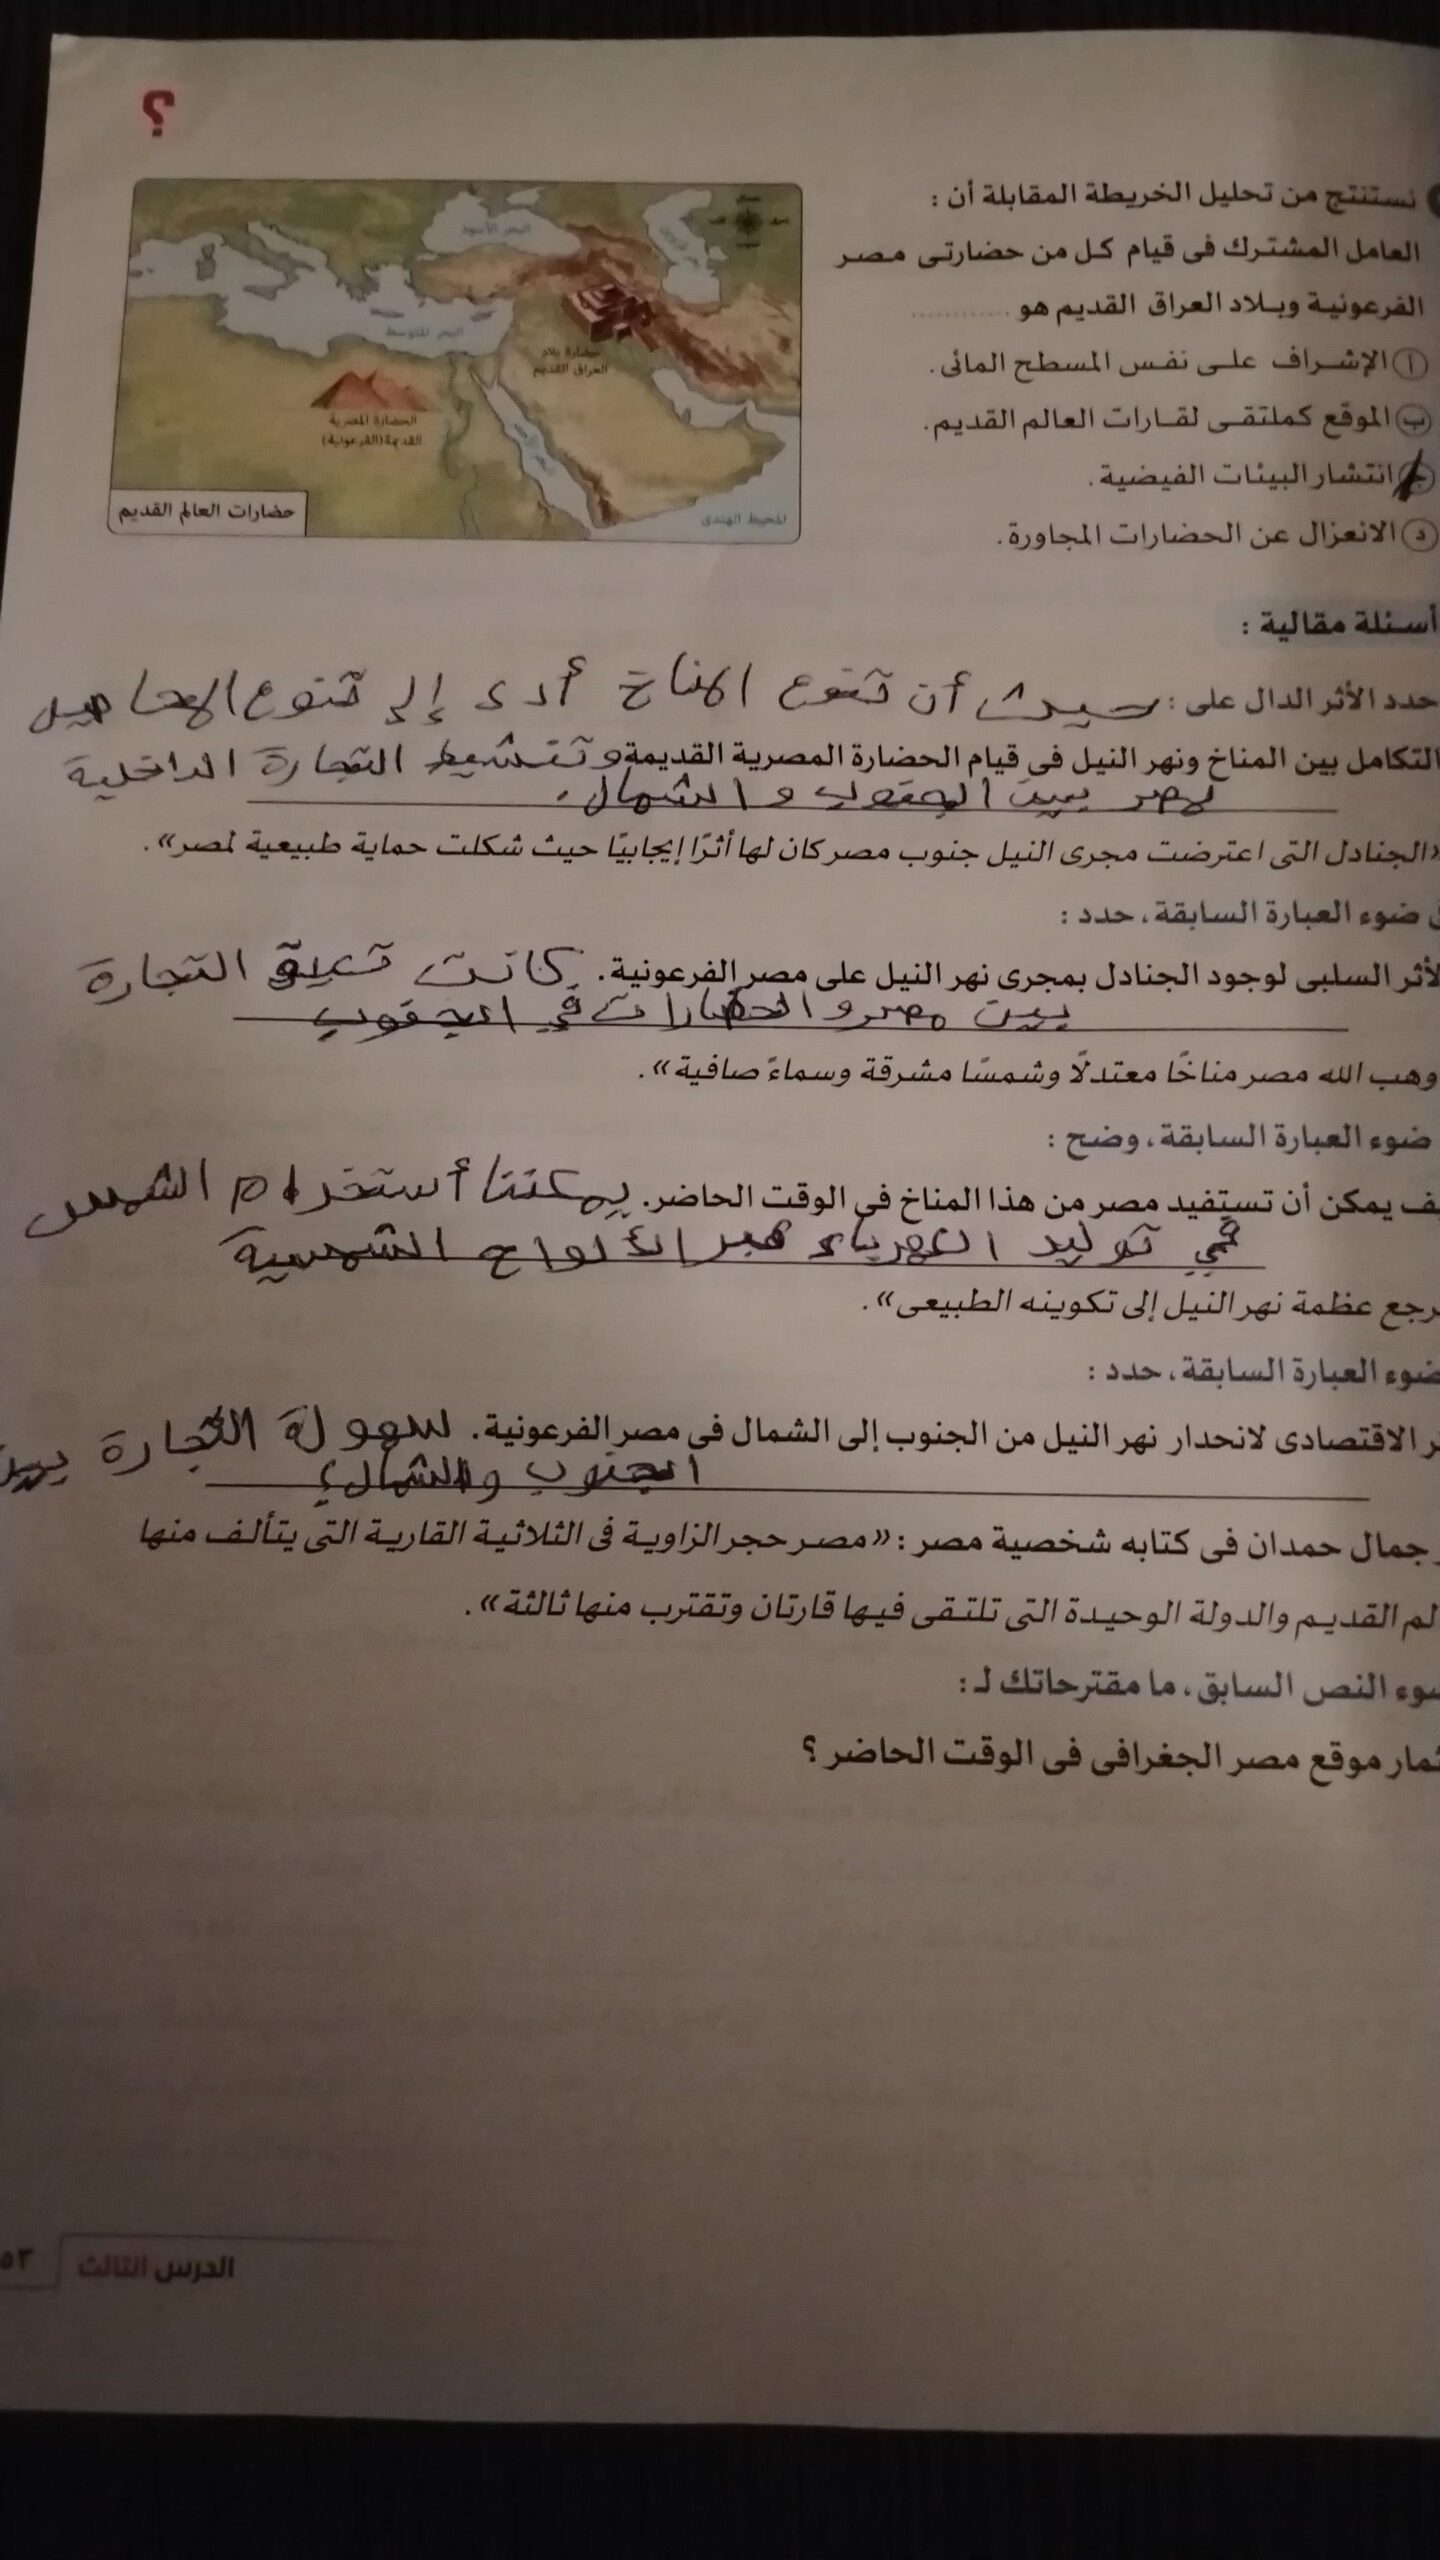 ؟
نستنتج من تحليل الخريطة المقابلة أن :
العامل المشترك فى قيام كل من حضارتى مصر
الفرعونية وبلاد العراق القديم هو ............
أ الإشراف على نفس المسطح المائى.
ب الموقع كملتقى لقارات العالم القديم.
ج انتشار البيئات الفيضية.
د الانعزال عن الحضارات المجاورة.
شمال
شرق
البحر الأسود
البحر المتوسط
حضارة بلاد
العراق القديم
الحضارة المصرية
القديمة (الفرعونية)
المحيط الهندى
حضارات العالم القديم
أسئلة مقالية :
حدد الأثر الدال على : حيث أن تنوع المناخ أدى إلى تنوع المحاصيل
التكامل بين المناخ ونهر النيل فى قيام الحضارة المصرية القديمة وتنشيط التجارة الداخلية
لمصر بين الجنوب والشمال.
«الجنادل التى اعترضت مجرى النيل جنوب مصر كان لها أثرًا إيجابيًا حيث شكلت حماية طبيعية لمصر».
ضوء العبارة السابقة، حدد :
لأثر السلبى لوجود الجنادل بمجرى نهر النيل على مصر الفرعونية. كانت تعيق التجارة
بين مصر والحضارات في الجنوب
وهب الله مصر مناخًا معتدلًا وشمسًا مشرقة وسماءً صافية».
ضوء العبارة السابقة، وضح :
يف يمكن أن تستفيد مصر من هذا المناخ فى الوقت الحاضر. يمكننا أستخدام الشمس
في توليد الكهرباء عبر الألواح الشمسية
رجع عظمة نهر النيل إلى تكوينه الطبيعى».
ضوء العبارة السابقة، حدد :
ر الاقتصادى لانحدار نهر النيل من الجنوب إلى الشمال فى مصر الفرعونية. سهولة التجارة بين
الجنوب والشمال
جمال حمدان فى كتابه شخصية مصر : «مصر حجر الزاوية فى الثلاثية القارية التى يتألف منها
لم القديم والدولة الوحيدة التى تلتقى فيها قارتان وتقترب منها ثالثة».
وء النص السابق، ما مقترحاتك لـ :
ثمار موقع مصر الجغرافى فى الوقت الحاضر ؟
الدرس الثالث
٥٣